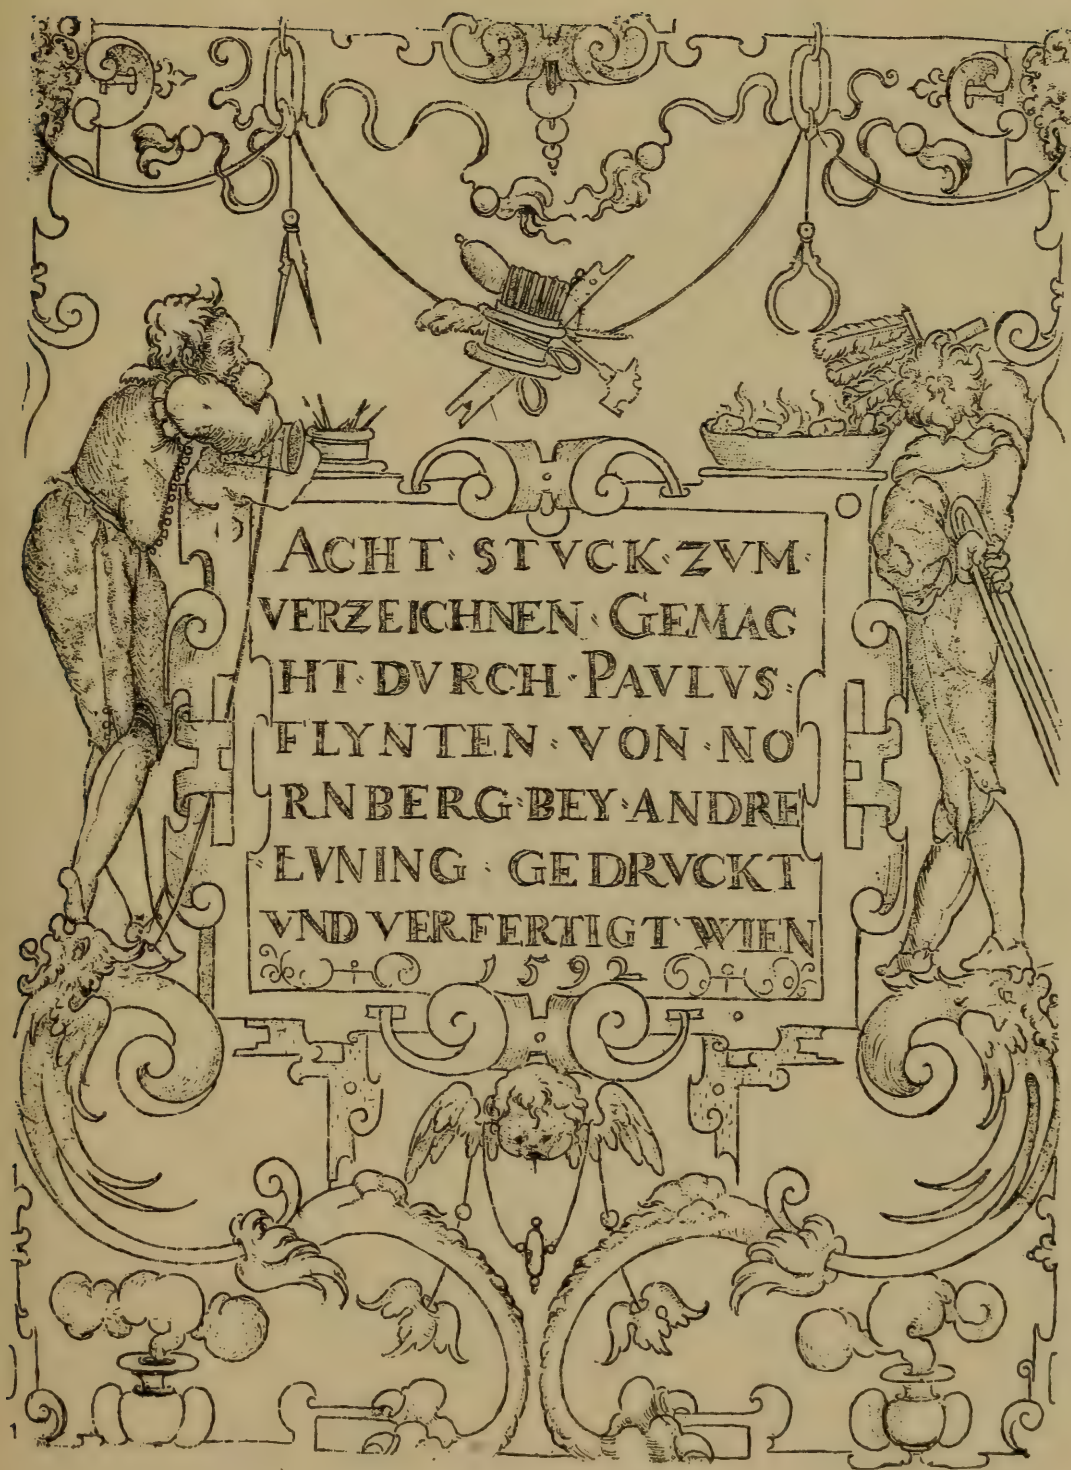 ACHT · STVCK · ZVM ·
VERZEICHNEN · GEMAC
HT · DVRCH · PAVLVS ·
FLYNTEN · VON · NO
RNBERG · BEY · ANDRE
LVNING · GEDRVCKT
VND VERFERTIGT · WIEN
1592